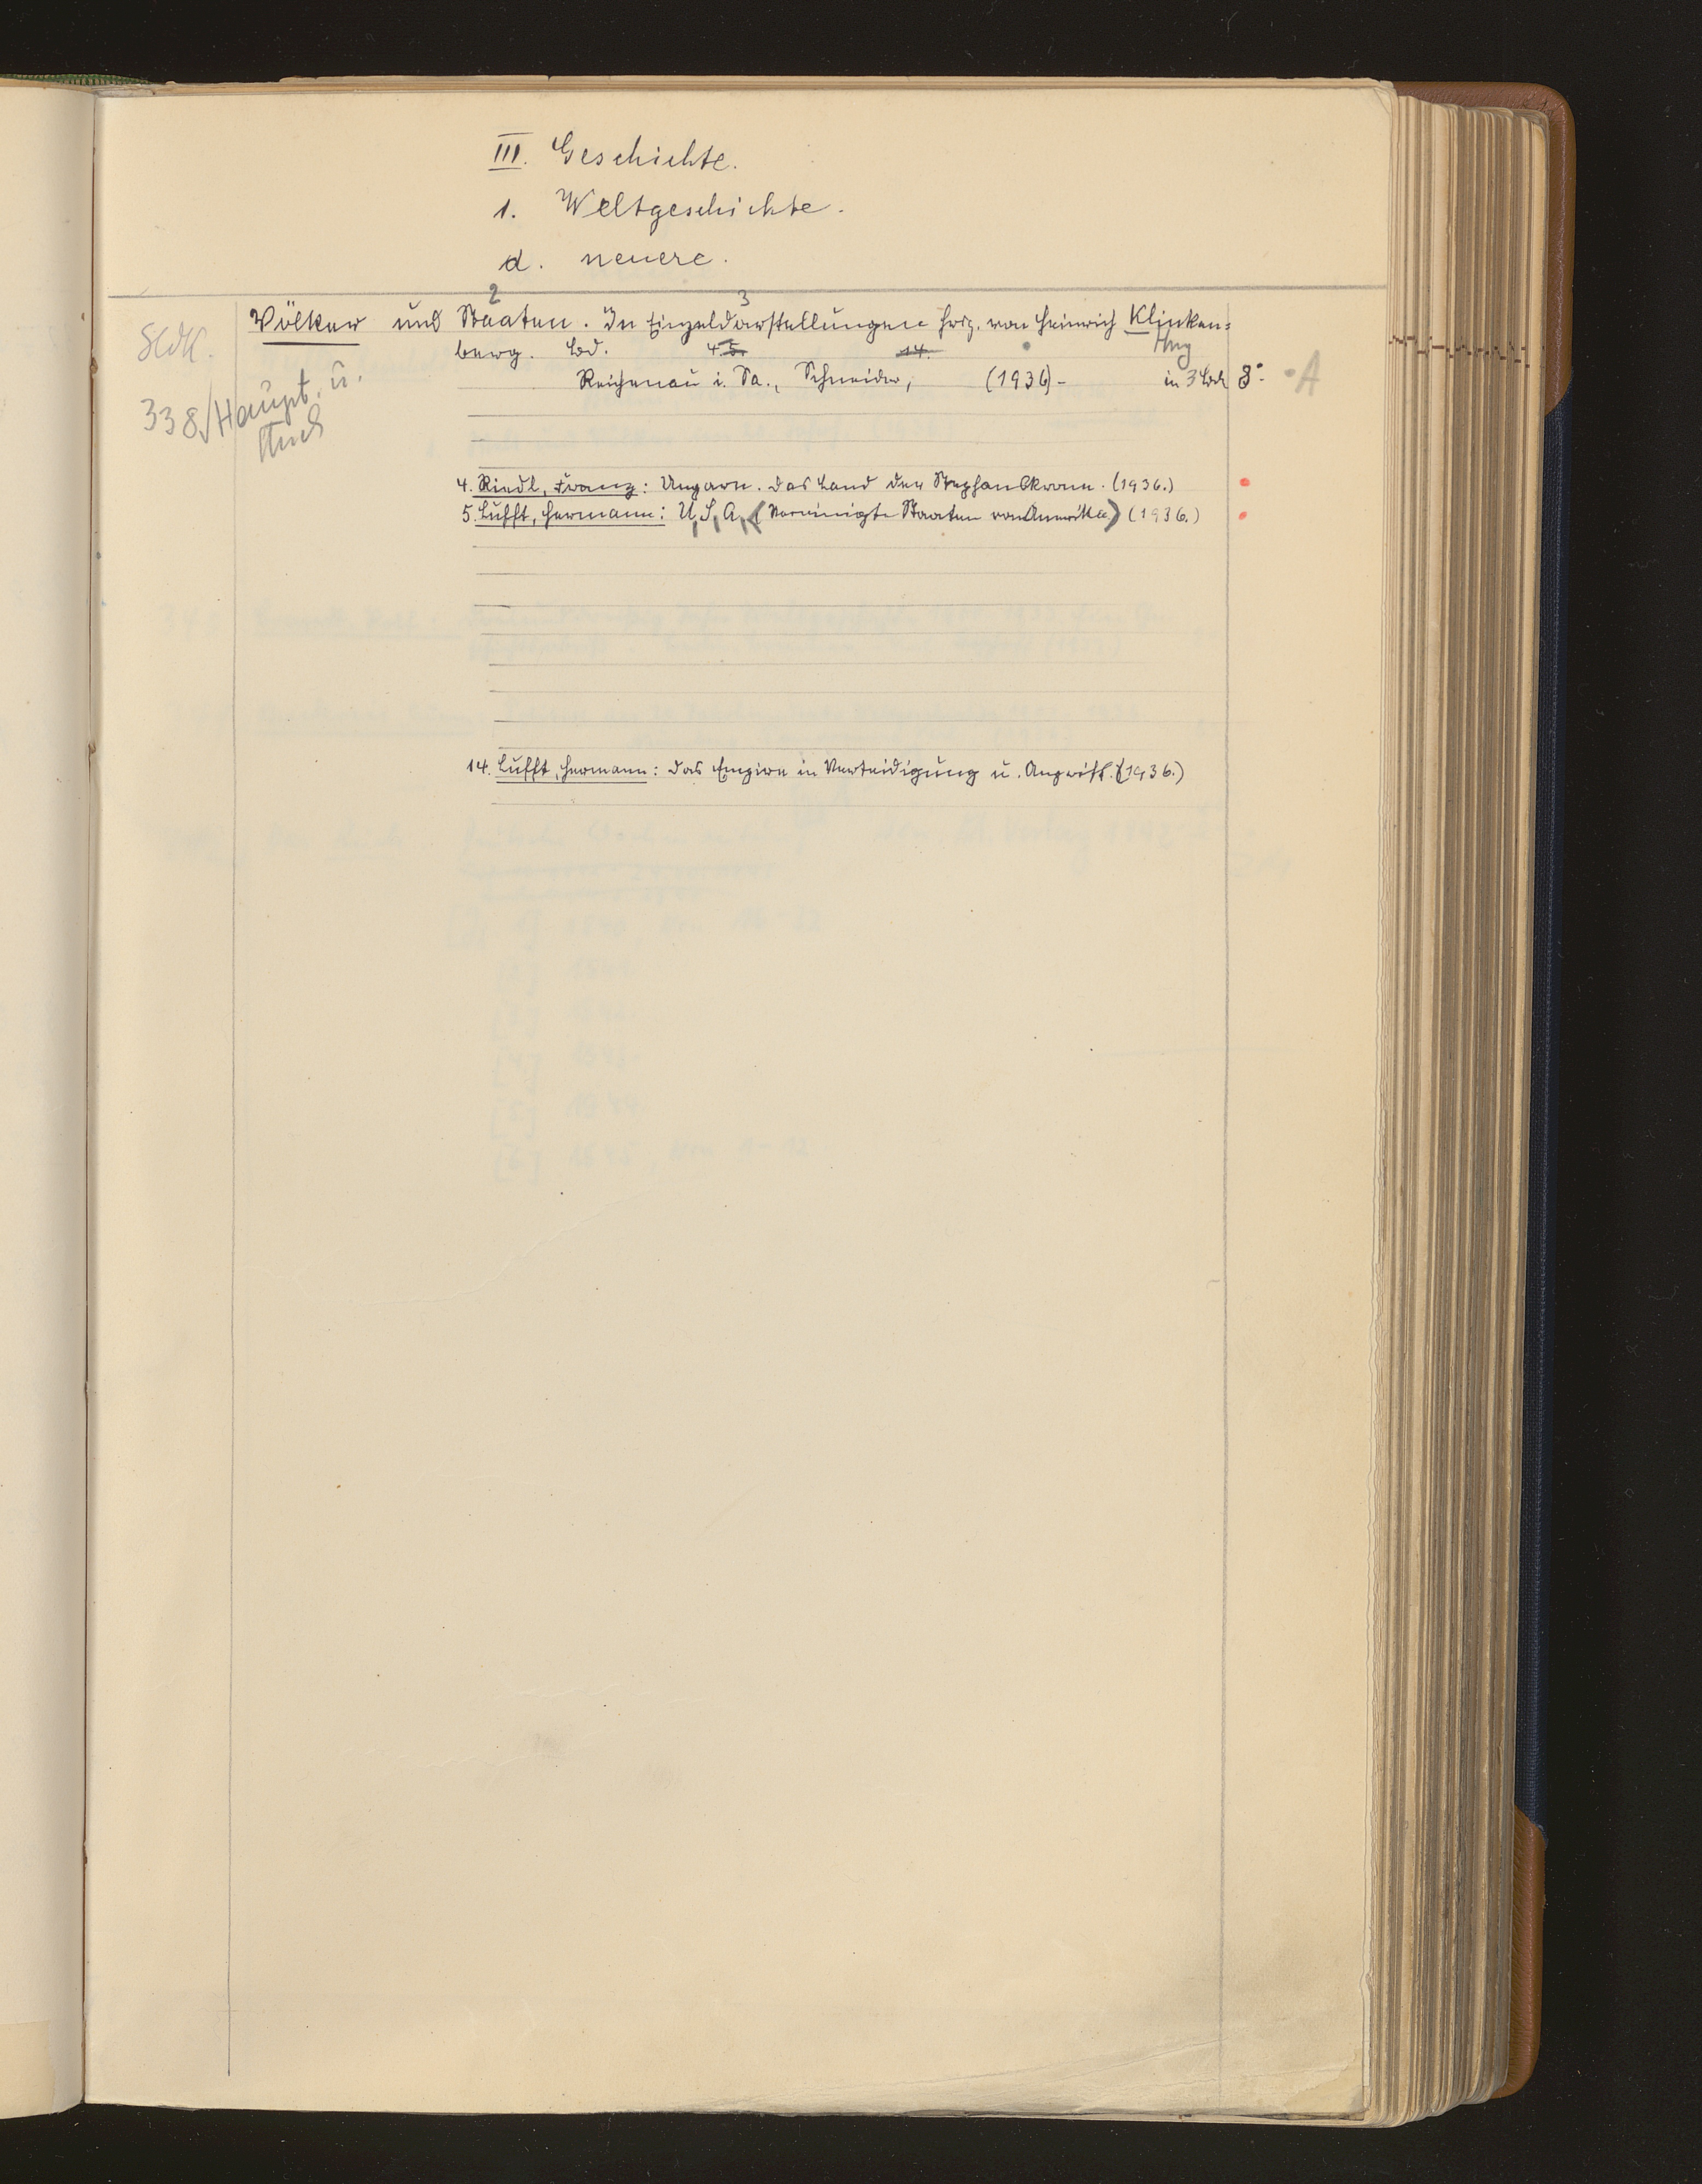 III. Geschichte.
1. Weltgeschichte.
d. neuere.
2 3
Völker und Staaten. In Einzeldarstellungen hrsg. von Heinrich Klinken=
berg. Bd. 4 5. 14.
Reichenau i. Sa., Schneider, (1936)- in 3 Bdn 8°. A
338/Haupt. u.
4. Riedl, Franz: Ungarn. Das Land der Stephanskrone. (1936.)
5. Lufft, Hermann: U, S, A, (Vereinigte Staaten von Amerika) (1936.)
14. Lufft, Hermann: Das Empire in Verteidigung u. Angriff. (1936.)